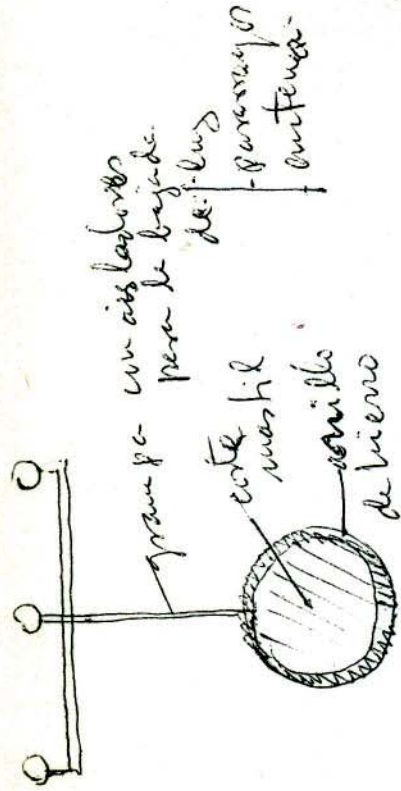 grampa con aisladores
para la bajada
de: luz
- pararrayos
antena.
corte
mastil
anillo
de hierro